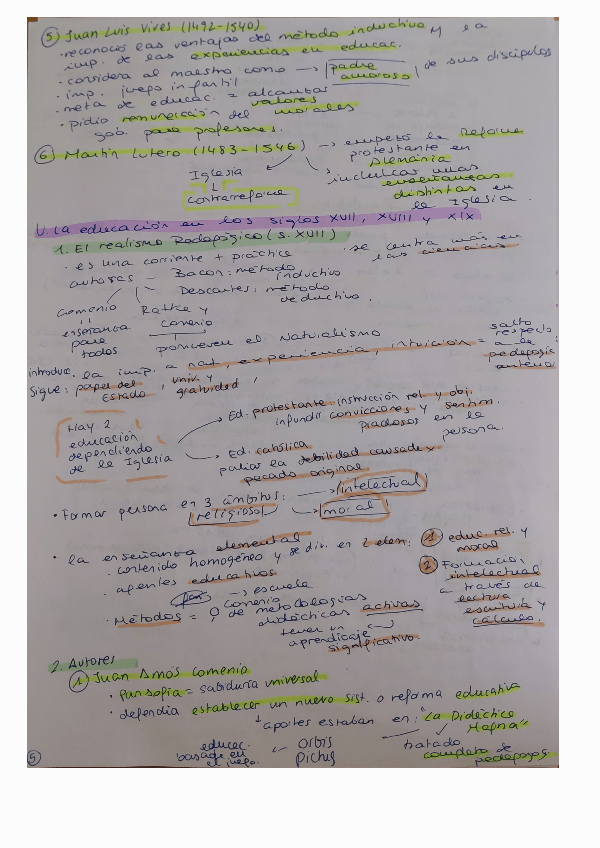 5) Juan Luis Vives (1492-1540)
· reconoce las ventajas del método inductivo y la
imp. de las experiencias en educac.
· considera al maestro como → padre amoroso de sus discípulos
· imp. juego infantil
· meta de educac. = alcanzar valores morales
· pidió remuneración del
gob. para profesores.
6) Martín Lutero (1483-1546) → empezó la Reforma
protestante en
Alemania
Iglesia
↓
contrarreforma
→ incluir unas
enseñanzas
distintas en
la Iglesia.
V. La educación en los siglos XVII, XVIII y XIX
1. El realismo Pedagógico (s. XVII)
· es una corriente + práctica · se centra más en
las ciencias
autores — Bacon: método
inductivo
Descartes: método
deductivo.
Comenio
enseñanza
para
todos
Ratke y
Comenio
promueven el Naturalismo
introduce. la imp. a nat, experiencia, intuición = salto
respecto
a la
pedagogía
anterior
Sigue: papel del
Estado, univ. y
gratuidad,
Hay 2
educación
dependiendo
de la Iglesia
→ Ed. protestante instrucción rel. y obj.
infundir convicciones y sentim.
piadosos en la
persona.
→ Ed. católica
paliar la debilidad causada x
pecado original
· Formar persona en 3 ámbitos: → intelectual
religioso → moral
· la enseñanza elemental
· contenido homogéneo y se div. en 2 elem: 1 educ. rel. y
moral
2 Formación
intelectual
a través de
lectura
escritura y
cálculo.
· agentes educativos
→ escuela
Comenio
· Métodos = de metodologías
didácticas activas
tener un
aprendizaje
significativo.
2. Autores
1) Juan Amós Comenio
· Pansofia = sabiduría universal
· defendía establecer un nuevo sist. o reforma educativa
↓ aportes estaban en: "La Didáctica
Magna"
tratado
completo de
pedagogía.
Orbis
Pictus
educac.
basada en
el juego.
5